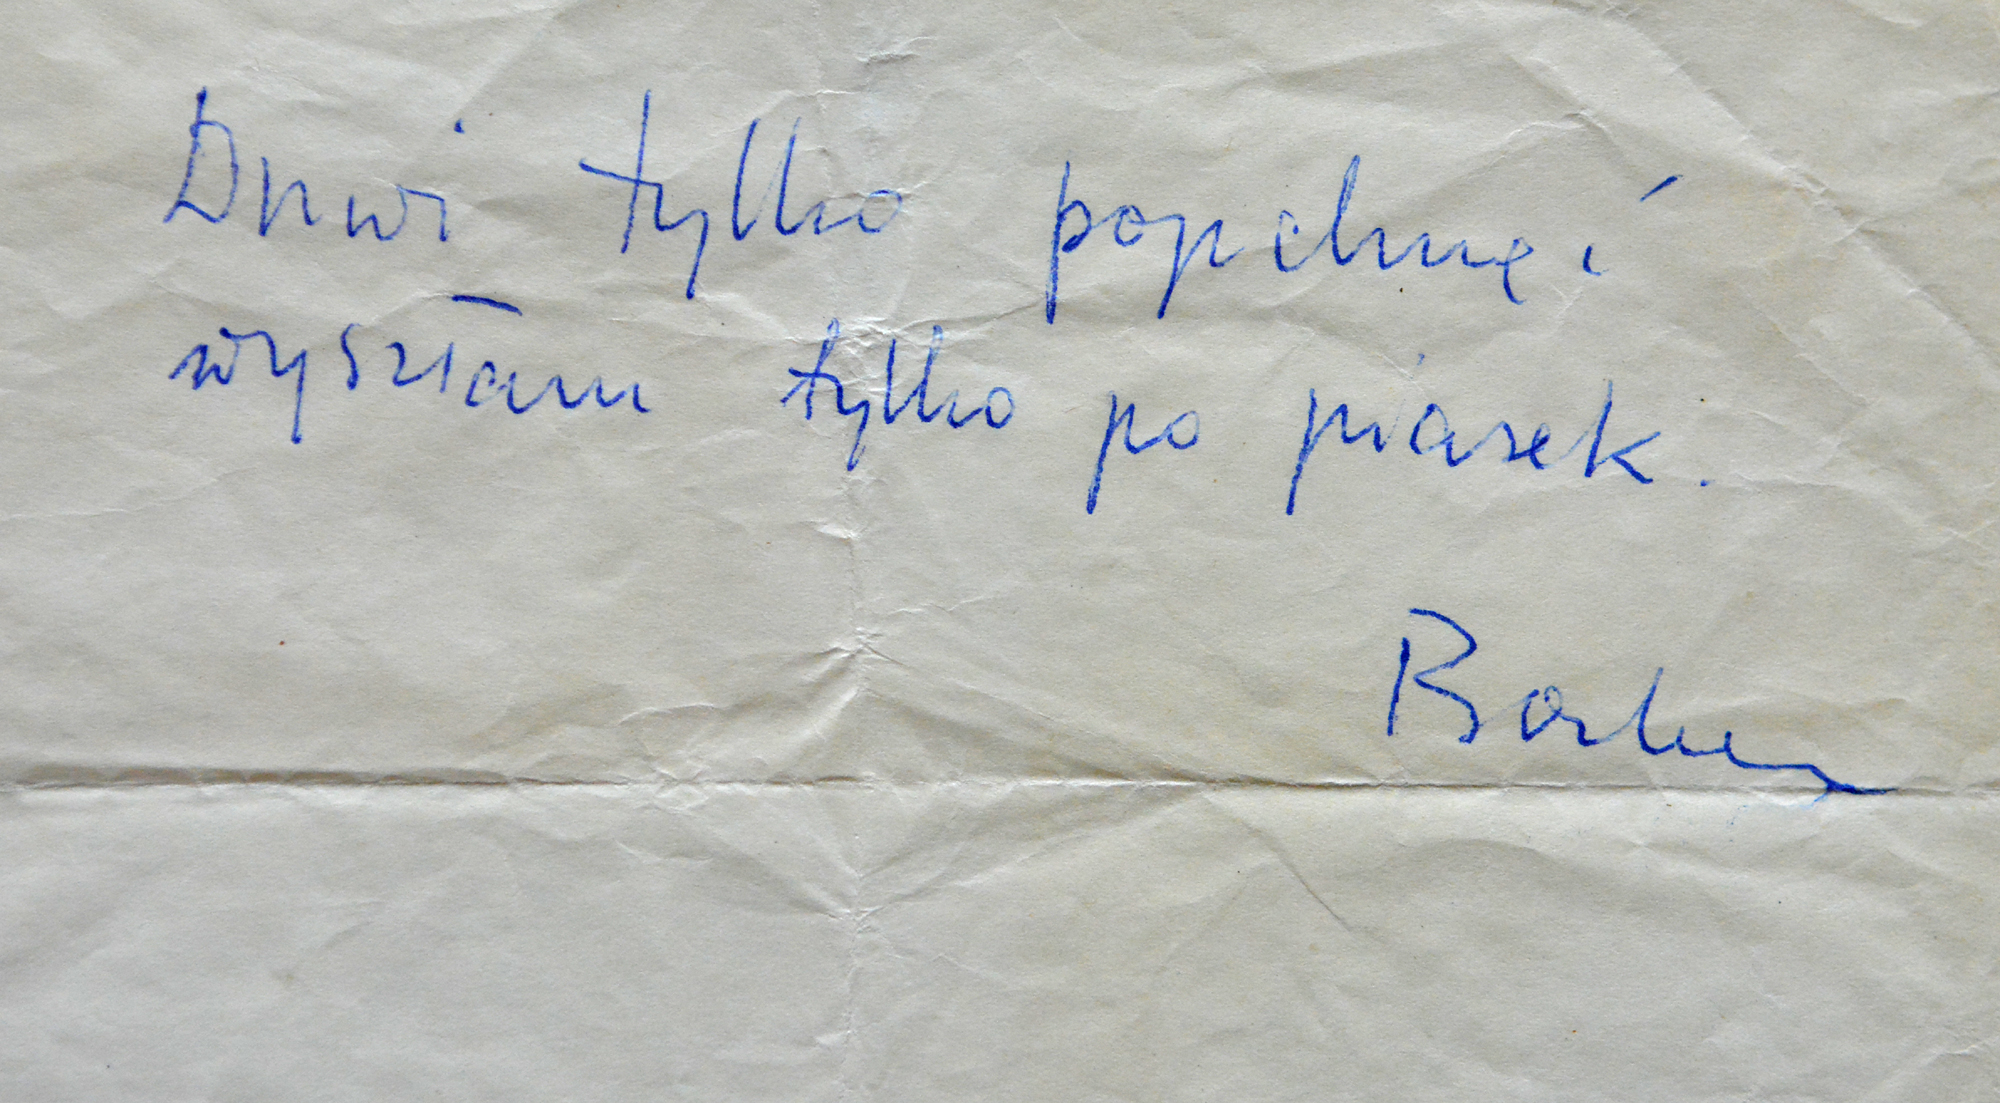 Drzwi tylko popchnąć
wyszłam tylko po piasek.